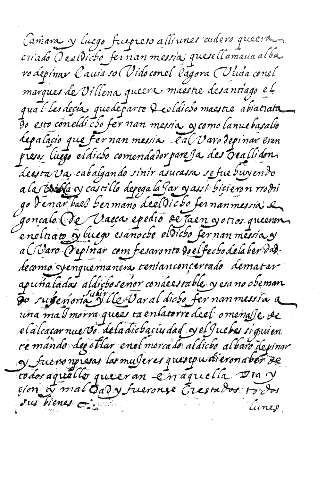 Camara y luego fue preso alli un escudero que era
criado del dicho fernan mexia que se llamava alba
ro de pinar l avia so vido con el
marques de Villena que era maestre de santiago el
qual les decia que de parte del dicho maestre abia trata
do esto con el dicho fernan mexia y como la nueba salio
de palacio que fernan mexia e alvaro de pinar eran
presos luego el dicho comendador pareja desde alli don
de estava cabalgando sin ir a su casa se fue huyendo
a la villa y castillo de pegalajar y assi hicieron rodri
go de narbaez hermano del dicho fernan mexia e
gonçalo de vaeça e pedro de jaen y otros que eran
en el trato y luego esa noche el dicho fernan mexia y
alvaro de pinar confesaron todo el fecho de la berdad
de como y en que manera tenian concertado de matar
a puñaladas al dicho señor condestable y esa noche man
do su señoria llevar al dicho fernan mexia a
una mazmorra que esta en la torre del omenaje de
el alcaçar nuevo de la dicha ciudad y el juebes siguien
te mando degollar en el mercado al dicho alvaro de pinar
y fueron presas las mugeres que se pudieron aber de
todos aquellos que eran en aquella
cion y maldad y fueronse crestados todos
sus bienes
lunes